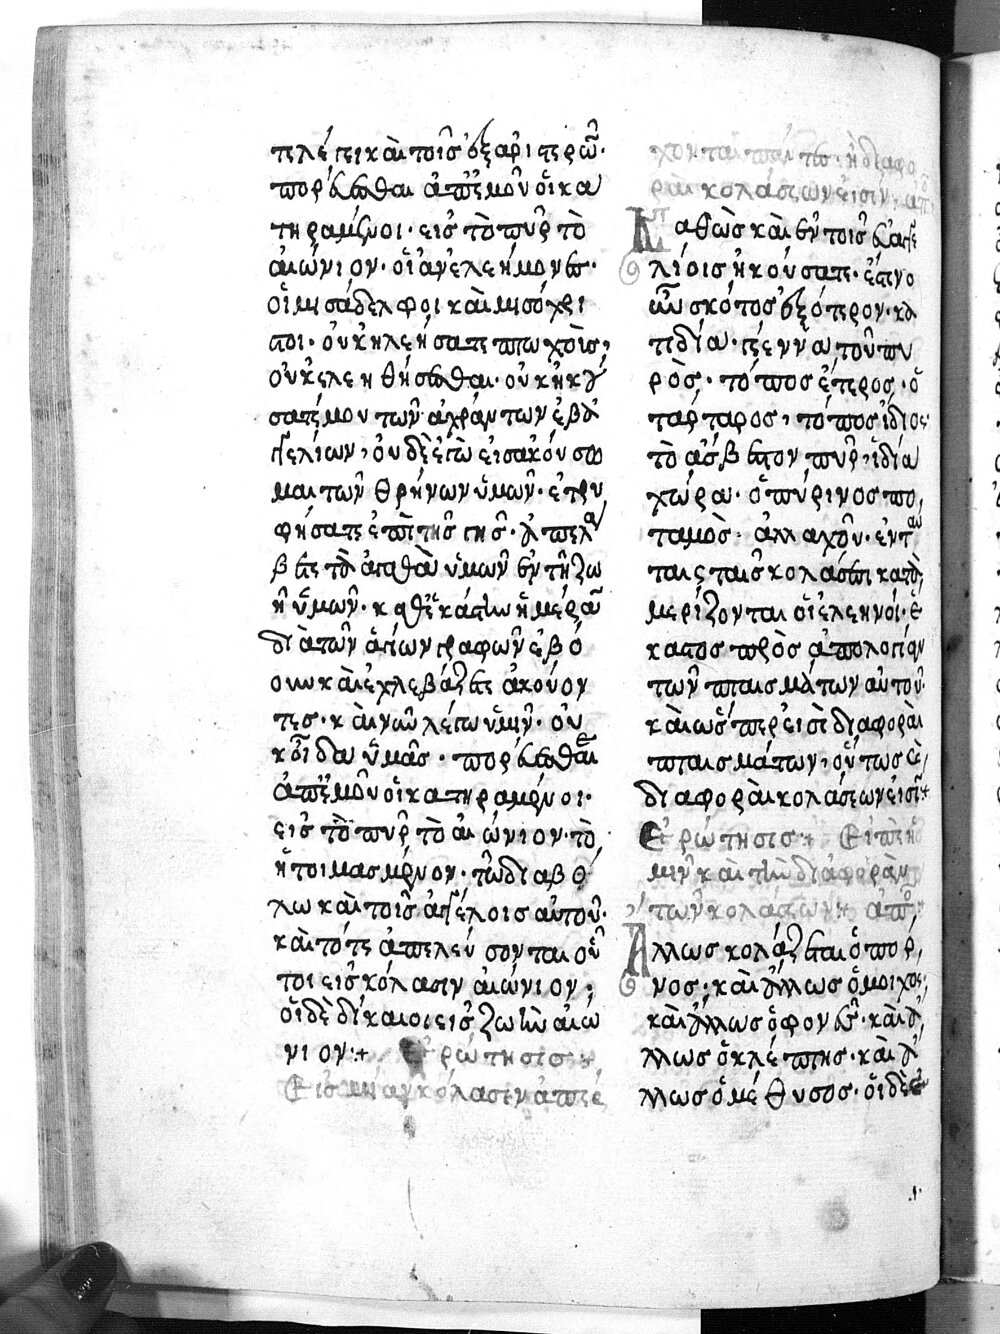 τελέγει καὶ τοῖς ἐξ ἀριστερῶν·
πορεύεσθαι ἀπ' ἐμοῦ οἱ κα
τηραμένοι· εἰς τὸ πῦρ τὸ
αἰώνιον· οἱ ἀνελεήμονες·
οἱ μισάδελφοι καὶ μισόχρι
στοι· οὐκ ἠλεήσατε πτωχοῖς,
οὐκ ἐλεηθήσεσθαι· οὐκ ἠκού
σατέ μου τῶν ἀχράντων εὐαγ
γελίων, οὐδὲ ἐγὼ εἰσακούσω
μαι τῶν θρήνων ὑμῶν· ἐτρυ
φήσατε ἐπὶ τῆς γῆς· ἀπελά
βετε τὰ ἀγαθὰ ὑμῶν ἐν τῇ ζω
ῇ ὑμῶν· καθ' ἑκάστην ἡμέραν
διὰ τῶν ἁγίων γραφῶν ἐβό
ουν καὶ ἐχλεβάζετε ἀκούον
τες· καὶ νῦν λέγω ὑμῖν· οὐ
κ οἶδα ὑμᾶς· πορεύεσθαι
ἀπ' ἐμοῦ οἱ κατηραμένοι·
εἰς τὸ πῦρ τὸ αἰώνιον· τὸ
ἡτοιμασμένον· τῷ διαβό
λω καὶ τοῖς ἀγγέλοις αὐτοῦ·
καὶ τότε ἀπελεύσονται οὗ
τοι εἰς κόλασιν αἰώνιον;
οἱ δὲ δίκαιοι εἰς ζωὴν αἰώ
νιον:+ Ἐρώτησις:+
Εἰς μίαν κόλασιν ἀπέρ
χονται πάντες· ἢ διαφο
ραὶ κολάσεων εἰσίν· ἀπό
Καθὼς καὶ ἐν τοῖς εὐαγγε
λίοις ἠκούσατε· ἐπνο
ῶν σκότος ἐξότερον· κλ
πεδία· γέεννα τοῦ πυ
ρὸς· τόπος ἕτερος· ὁ
τάρταρος, τόπος ἴδιος·
τὸ ἄσβεστον πῦρ, ἰδία
χώρα· ὁ πύρινος πο
ταμὸς· ἀλλαχοῦ· ἐν ταύ
ταις ταῖς κολάσεσι κατα
μερίζονται οἱ ἐλεηνοί· ἕ
καστος πρὸς ἀπολογίαν
τῶν πταισμάτων αὐτοῦ·
καὶ ὥσπερ εἰσὶ διαφοραὶ
πταισμάτων, οὕτως εἰ
διαφοραὶ κολάσεων εἰσίν+
Ἐρώτησις:+ Εἰπὲ ἡ
μῖν καὶ τὴν διαφορὰν
τῶν κολάσεων:+ ἀπό
Ἄλλως κολάζεται ὁ πόρ
νος; καὶ ἄλλως ὁ μοιχός;
καὶ ἄλλως ὁ φονεύς· καὶ ἄ
λλως ὁ κλέπτης· καὶ ἄ
λλως ὁ μέθυσος· οἱ δὲ ἐ